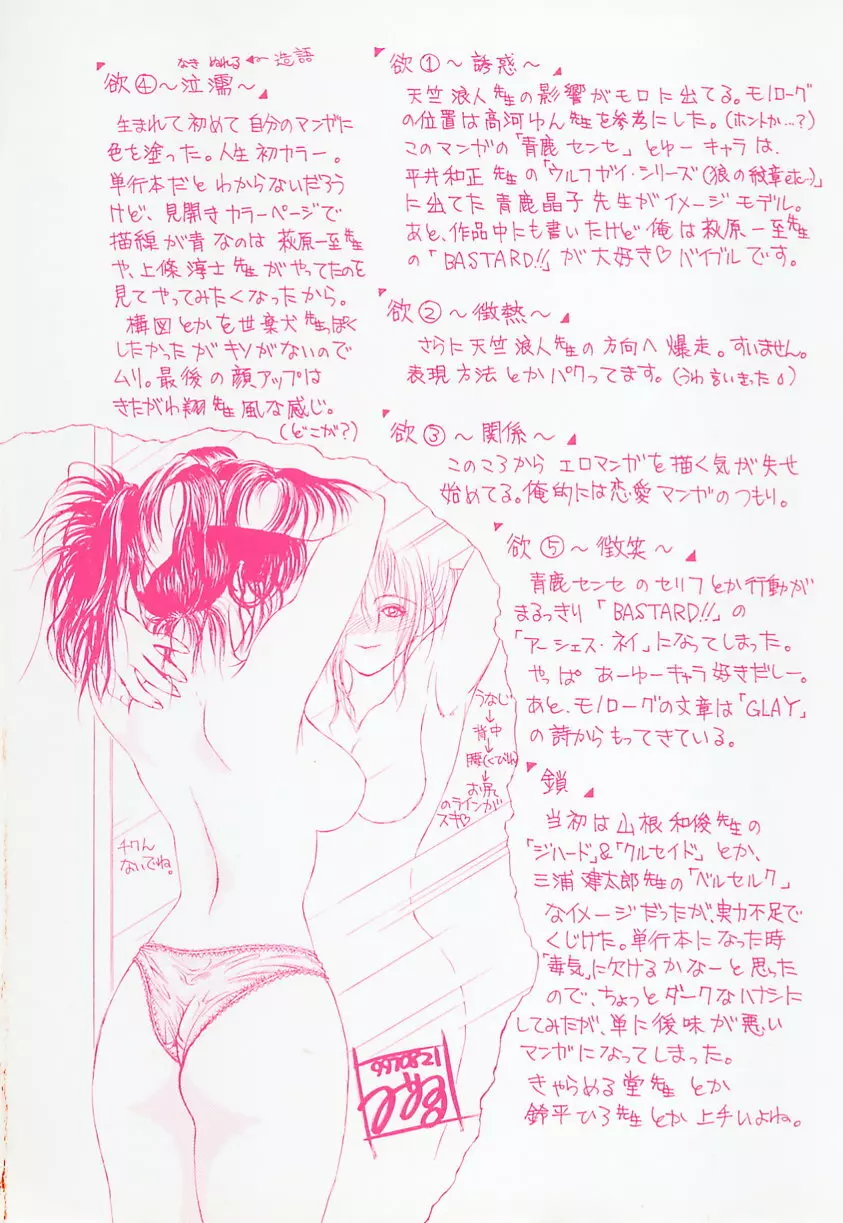 欲①～誘惑～
天竺浪人先生の影響がモロに出てる。モノローグ
の位置は高河ゆん先生を参考にした。(ホントか…?)
このマンガの「青鹿センセ」とゆーキャラは、
平井和正先生の「ウルフガイ・シリーズ(狼の紋章etc…)」
に出てた青鹿晶子先生がイメージモデル。
あと、作品中にも書いたけど俺は萩原一至先生
の「BASTARD!!」が大好き♡バイブルです。
欲②～微熱～
さらに天竺浪人先生の方向へ爆走。すいません。
表現方法とかパクってます。(うわ言いきった)
欲③～関係～
このころからエロマンガを描く気が失せ
始めてる。俺的には恋愛マンガのつもり。
なき ぬれる ← 造語
欲④～泣濡～
生まれて初めて自分のマンガに
色を塗った。人生初カラー。
単行本だとわからないだろう
けど、見開きカラーページで
描線が青なのは萩原一至先生
や、上條淳士先生がやってたのを
見てやってみたくなったから。
構図とかを世棄犬先生っぽく
したかったがキソがないので
ムリ。最後の顔アップは
きたがわ翔先生風な感じ。
(どこが?)
欲⑤～微笑～
青鹿センセのセリフとか行動が
まるっきり「BASTARD!!」の
「アーシェス・ネイ」になってしまった。
やっぱあーゆーキャラ好きだしー。
あと、モノローグの文章は「GLAY」
の詩からもってきている。
鎖
当初は山根和俊先生の
「ジハード」&「クルセイド」とか、
三浦建太郎先生の「ベルセルク」
なイメージだったが、実力不足で
くじけた。単行本になった時
「毒気」に欠けるかなーと思った
ので、ちょっとダークなハナシに
してみたが、単に後味が悪い
マンガになってしまった。
きゃらめる堂先生とか
鈴平ひろ先生とか上手いよね。
うなじ
↓
背中
↓
腰(くびれ)
↓
お尻
のラインが
スキ♡
チクん
ないでね。
9970821